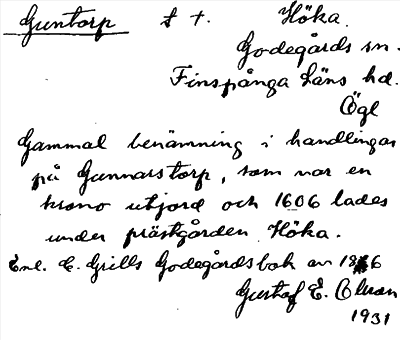 Guntorp ƚ +. Höka.
Godegårds sn.
Finspånga läns hd.
Ögl
Gammal benämning i handlingar
på Gunnarstorp, som var en
krono utjord och 1606 lades
under prästgården Höka.
Enl. C. Grills Godegårdsbok av
Gustaf E. Olsson
1931